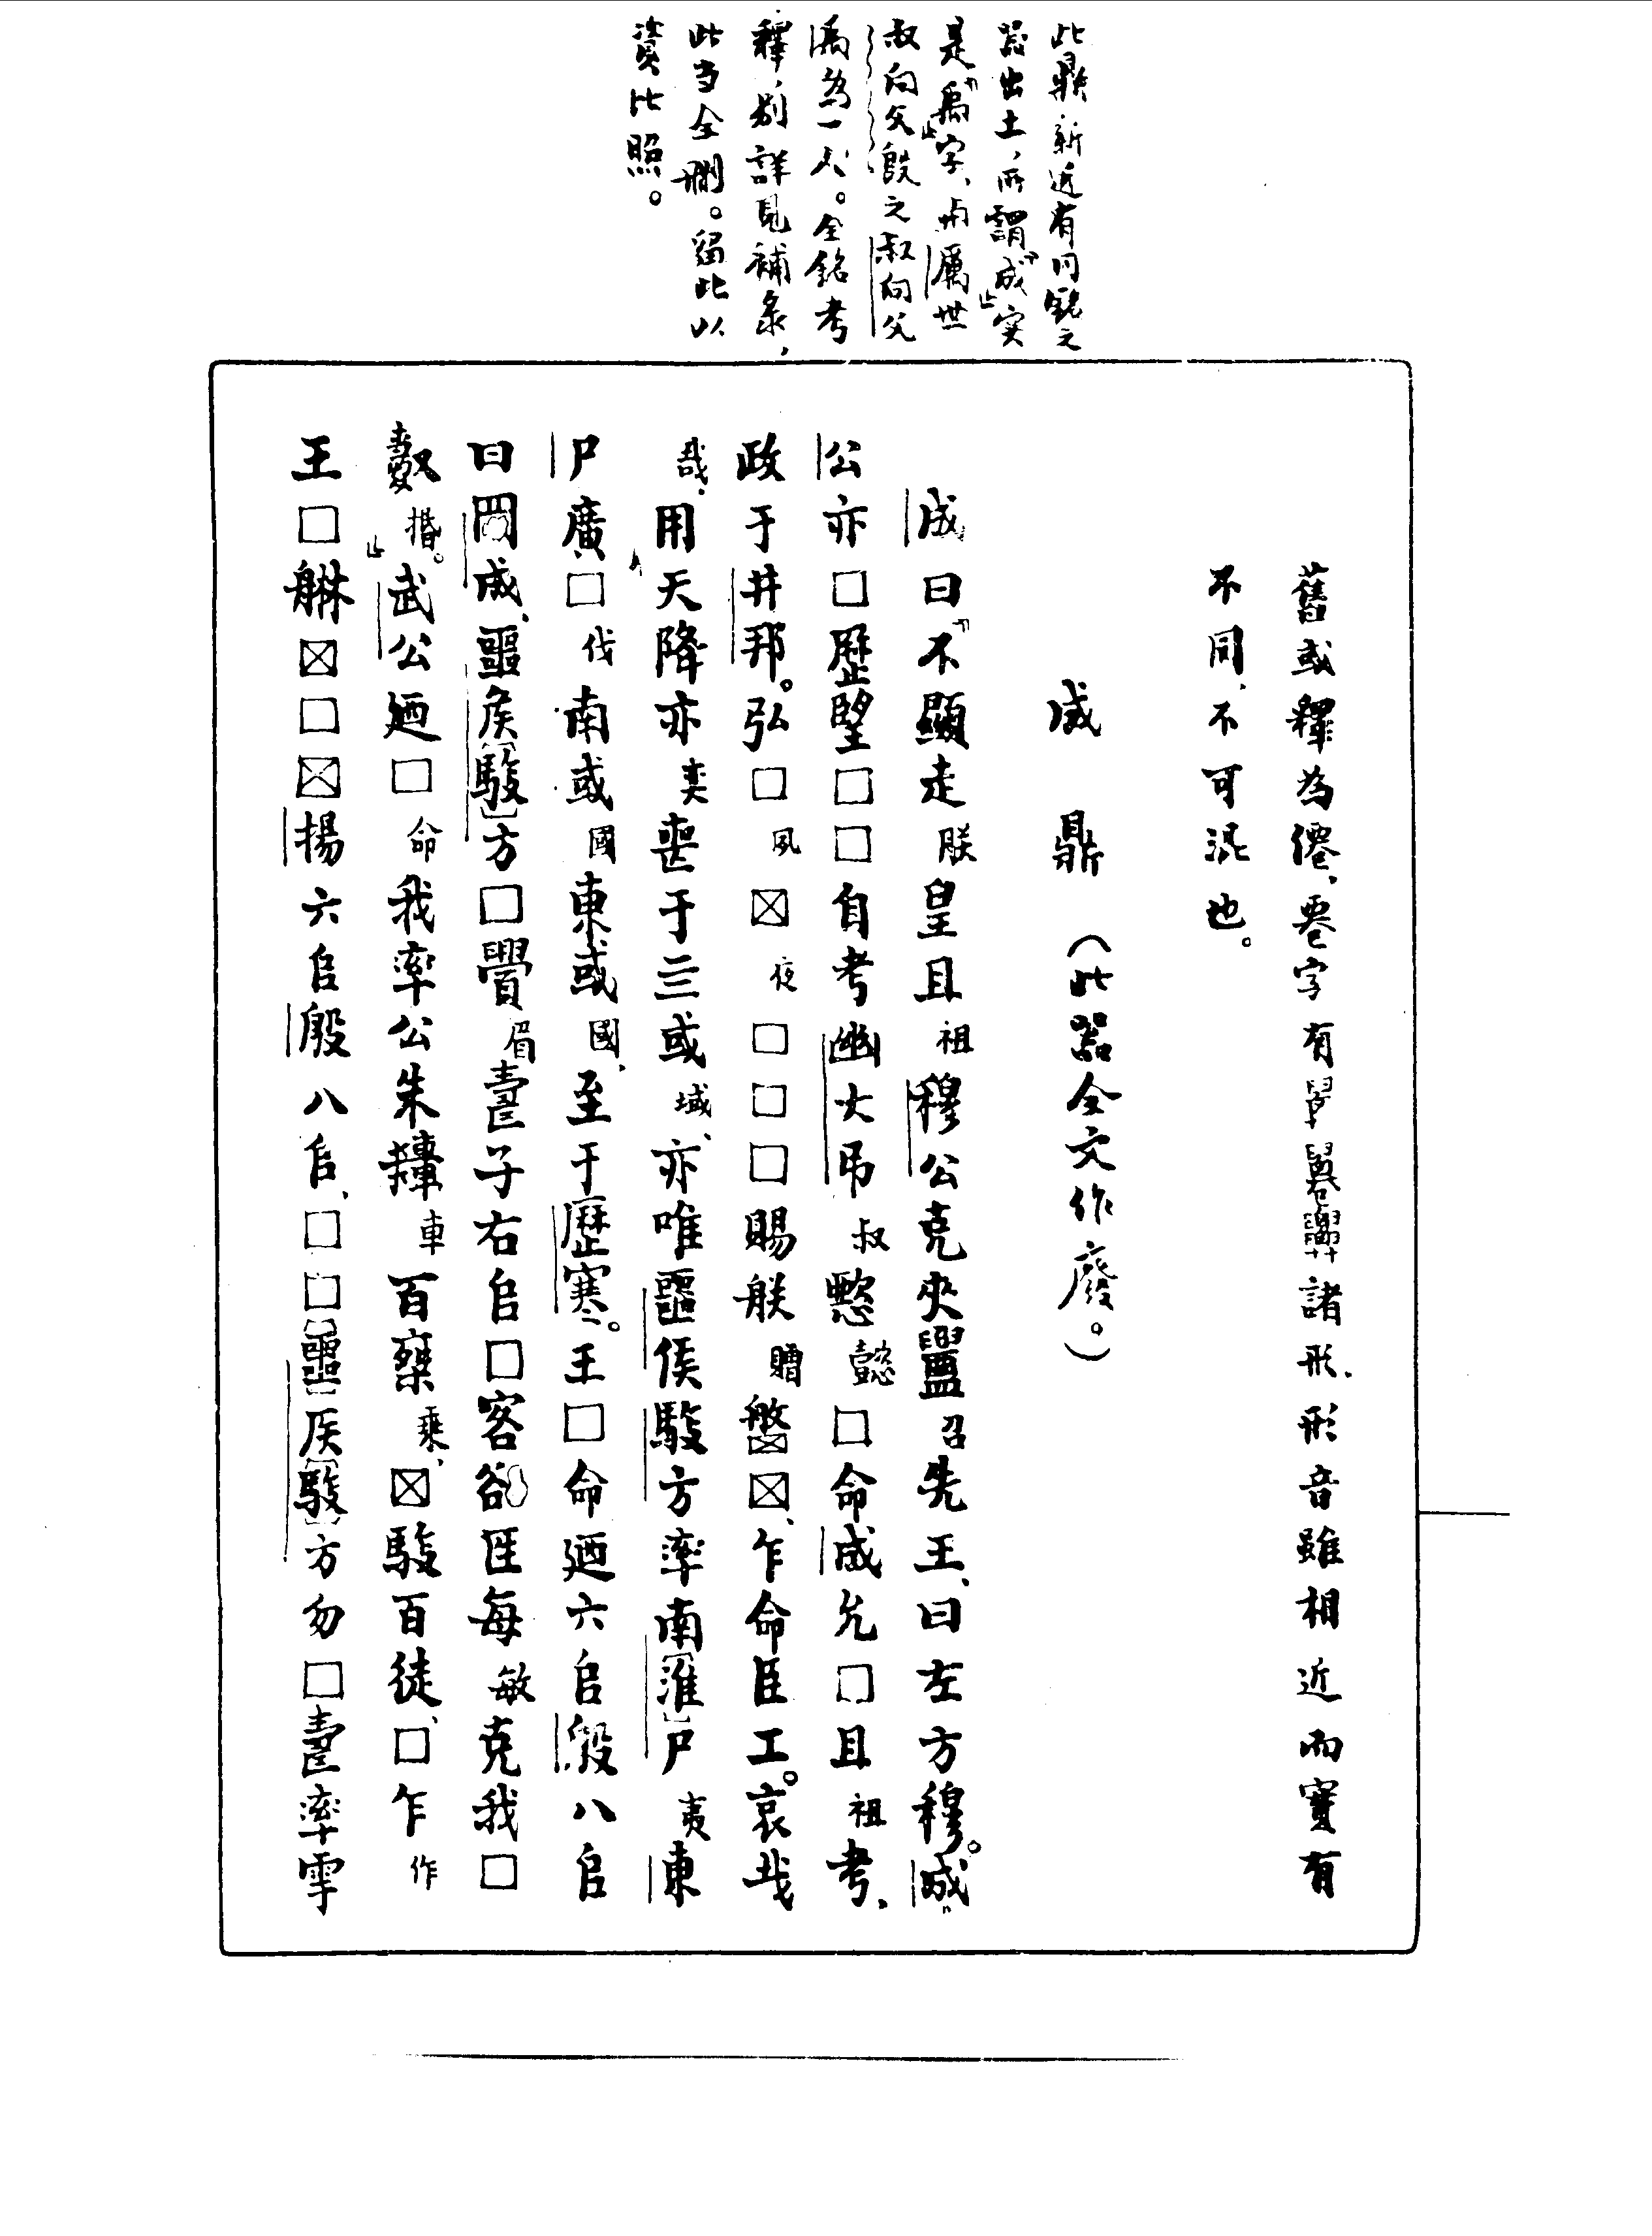 此鼎新近有同銘之
器出土，所謂「成」實
是「禹」字，与厲世
叔向父𣪘之叔向父
禹為一人。全銘考
釋，别詳見補彔，
此当全刪。留此以
資比照。
舊或釋為僊、䙴字有諸形，形音雖相近而實有
不同，不可混也。
成鼎（此器全文作廢。）
成曰「不顯走朕皇且祖穆公克夾召先王，曰左方穆。成
公亦□歷望□□自考幽大弔叔懿□命成允□且祖考，
政于井邦。弘□夙☒夜□□□賜朕賵☒，乍命臣工。哀𢦏
哉，用天降亦奕喪于三或域，亦唯噩侯駿方率南［淮］尸夷東
尸廣□伐南或國東或國，至于歷寒。王□命廼六𠂤殷八𠂤
曰□成，噩侯［駿］方□眉壽子右𠂤□客匡每敏克我□
揩。」武公廼□命我率公朱車百乘，☒駿百徒，□乍作
王□☒□☒揚六𠂤殷八𠂤，□□［噩］侯［駿］方勿□壽率雩